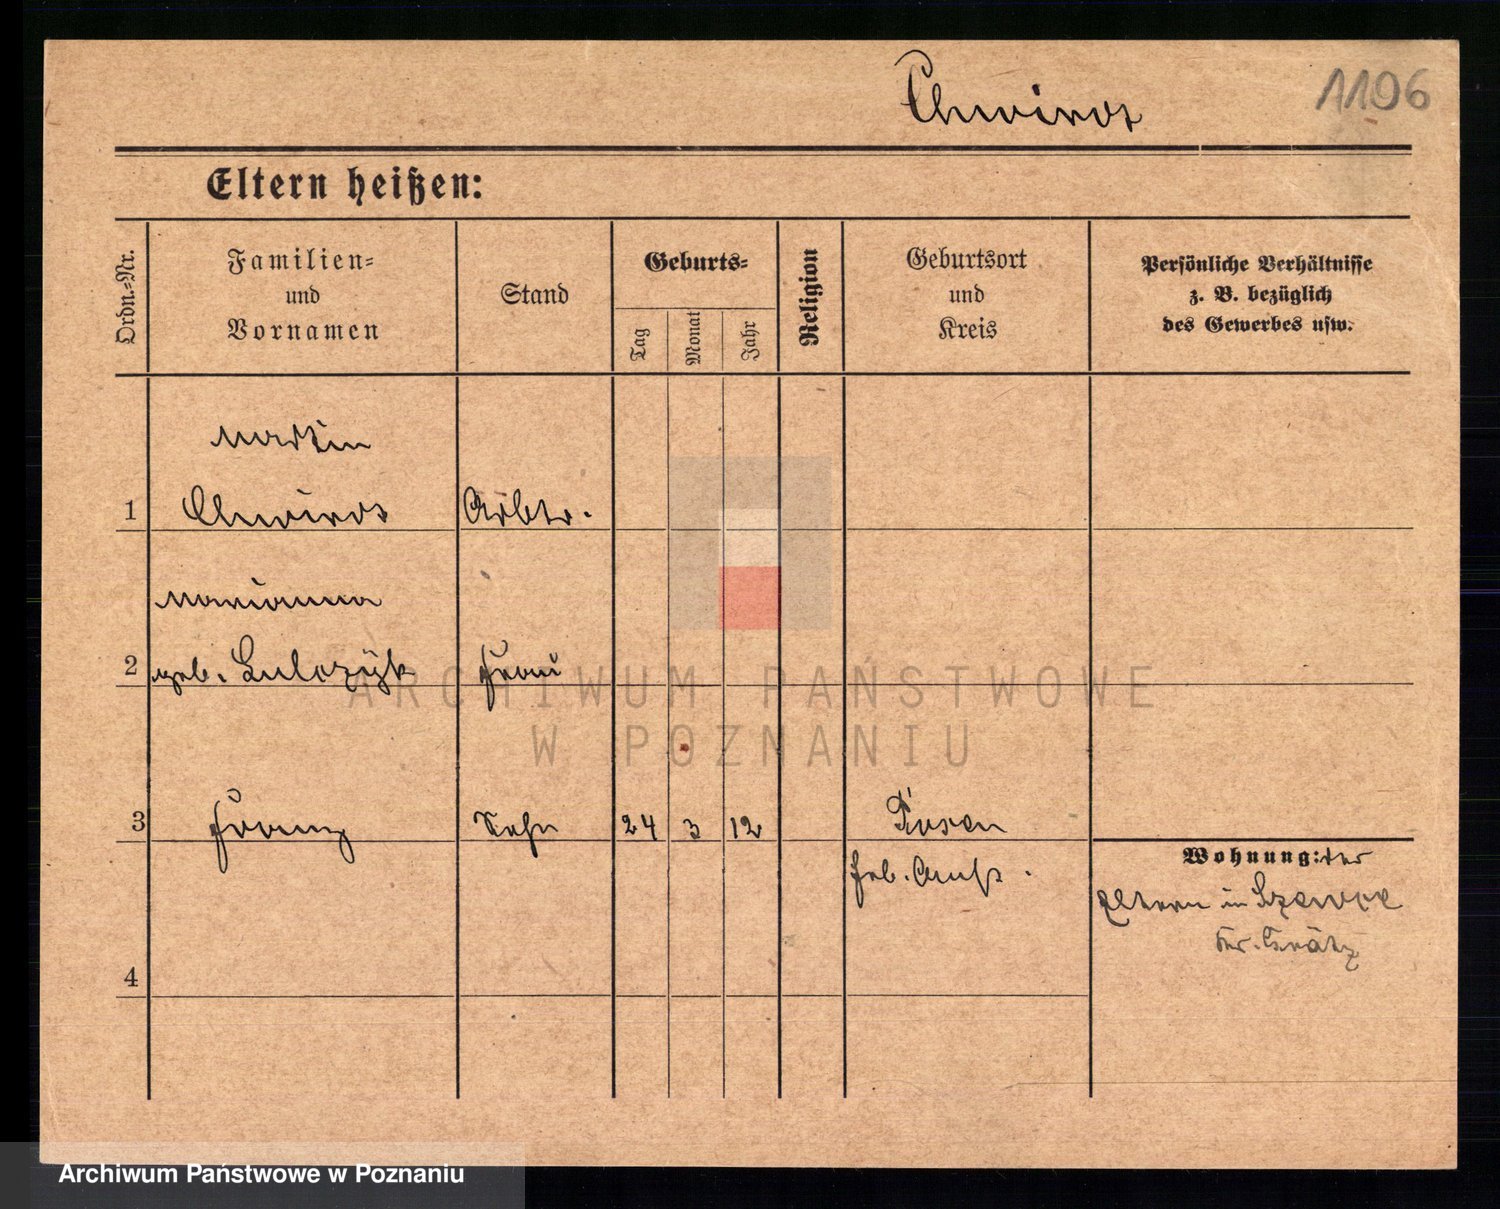 Chwirot
1196
Eltern heißen:
Ordn.-Nr.
Familien-
und
Vornamen
Stand
Geburts-
Tag
Monat
Jahr
Religion
Geburtsort
und
Kreis
Persönliche Verhältnisse
z. B. bezüglich
des Gewerbes usw.
Martin
1 Chwirot Arbtr.
Marianna
2 geb. Frau
ARCHIWUM PAŃSTWOWE
W POZNANIU
3 Franz Sohn 24 3 12 Posen
Wohnung: der
Eltern in
Kr. Grätz
4
Archiwum Państwowe w Poznaniu